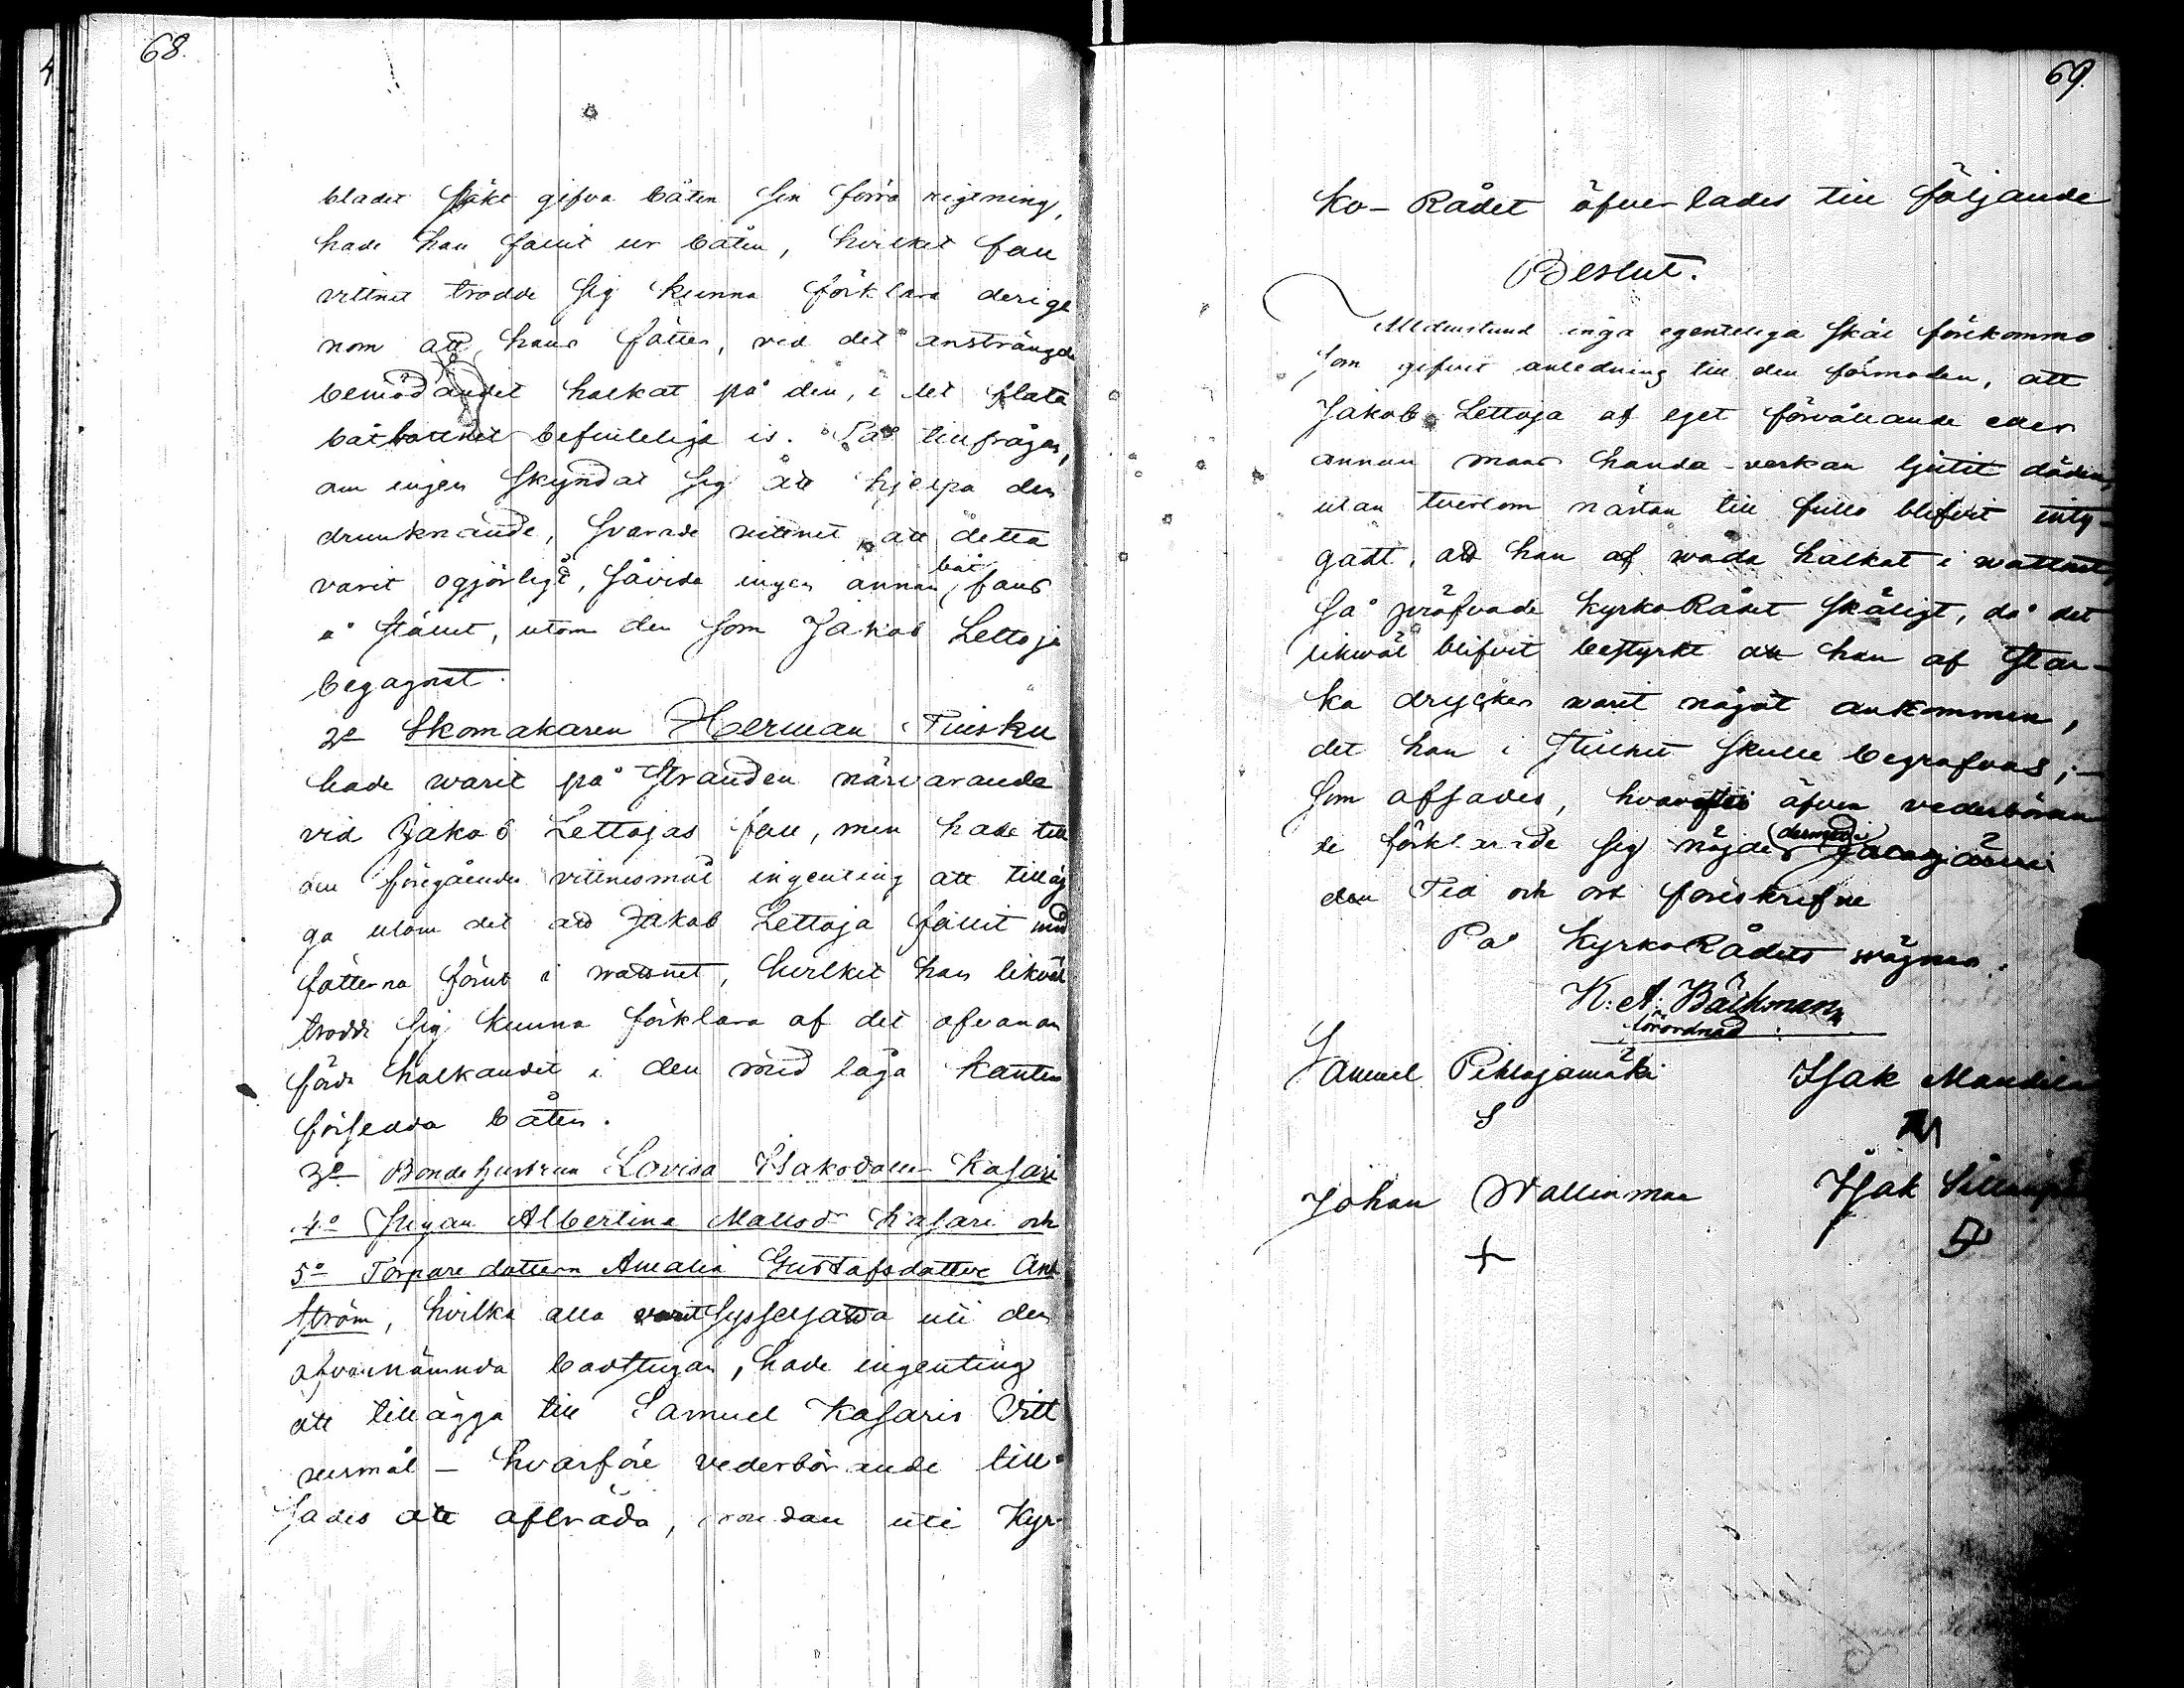 68.
bladet sökt gifva båten sin förra rigtning,
hade han fallit ur båten, hvilket fall
vittnet trodde sig kunna förklara derige
nom att hans fötter, vid det ansträngda
bemödandet halkat på den, i det flata
båtbottnet befintliga is. På tillfrågan,
om ingen skyndat sig att hjelpa den
drunknande, svarade vittnet att detta
varit ogjörligt, såvida ingen annan båt fans
å stället, utom den som Jakob Lettoja
begagnat.
2o Skomakaren Herman Finsku
hade warit på stranden närvarande
vid Jakob Lettojas fall, men hade till
om föregående vittnesmål ingenting att tilläg
ga utom det att Jakob Lettoja fallit med
fötterna förut i wattnet, hvilket han likväl
trodde sig kunna förklara af det ofvanan
förda halkandet i den med låga kanter
försedda båten.
3o Bondehustrun Lovisa Isaksdotter Kasari
4o Pigan Albertina Mattsdr Kasari och
5o Torpare dottern Amalia Gustafsdotter Ant
ström, hvilka alla varit sysselsatta uti den
ofvannämnda badstugan, hade ingenting
att tillägga till Samuel Kasaris Vitt
nesmål – hvarföre vederbörande till
sades att afträda, medan uti Kyr-
69.
ko-Rådet öfverlades till följande
Beslut.
Alldenstund inga egentliga skäl förekommo
som gifvit anledning till den förmodan, att
Jakob Lettoja af eget förvållande eller
annan mans handa-verkan ljutit döden,
utan tvertom nästan till fullo blifvit inty-
gadt, att han af wåda halkat i wattnet,
så pröfvade KyrkoRådet skäligt, då det
likwäl blifvit bestyrkt att han af star-
ka drycker warit något ankommen,
det han i stillhet skulle begrafvas; –
Som afsades, hvarefter äfven vederböran
de förklarade sig nöjde (dermed)
Tid och ort föreskrifne
På KyrkoRådets wägnar:
K: A: Bäckman
förordnad:
Samuel Pihlajamäki Isak Mandila
S
Johan Wallinmaa Isak
+